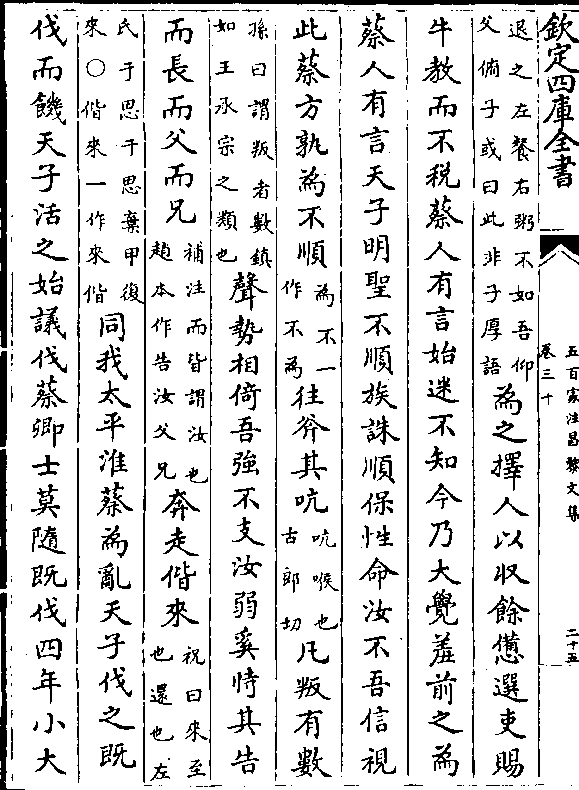 欽定四庫全書
五百家注昌黎文集
卷三十
二十五
退之左餐右粥不如吾仰父俯子或曰此非子厚語為之擇人以收餘憊選吏賜
牛教而不税蔡人有言始迷不知今乃大覺羞前之為
蔡人有言天子明聖不順族誅順保性命汝不吾信視
此蔡方孰為不順為不一作不為往斧其吭吭喉也古郎切凡叛有數
孫曰謂叛者數鎮如王承宗之類也聲勢相倚吾強不支汝弱奚恃其告
而長而父而兄補注而皆謂汝也趙本作告汝父兄奔走偕來祝曰來至也還也左
氏于思于思棄甲復來○偕來一作來偕同我太平淮蔡為亂天子伐之既
伐而饑天子活之始議伐蔡卿士莫隨既伐四年小大